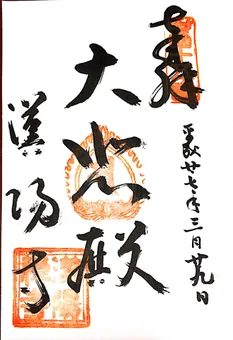 奉拝
平成廿七年三月廿九日
大悲殿
漢陽寺